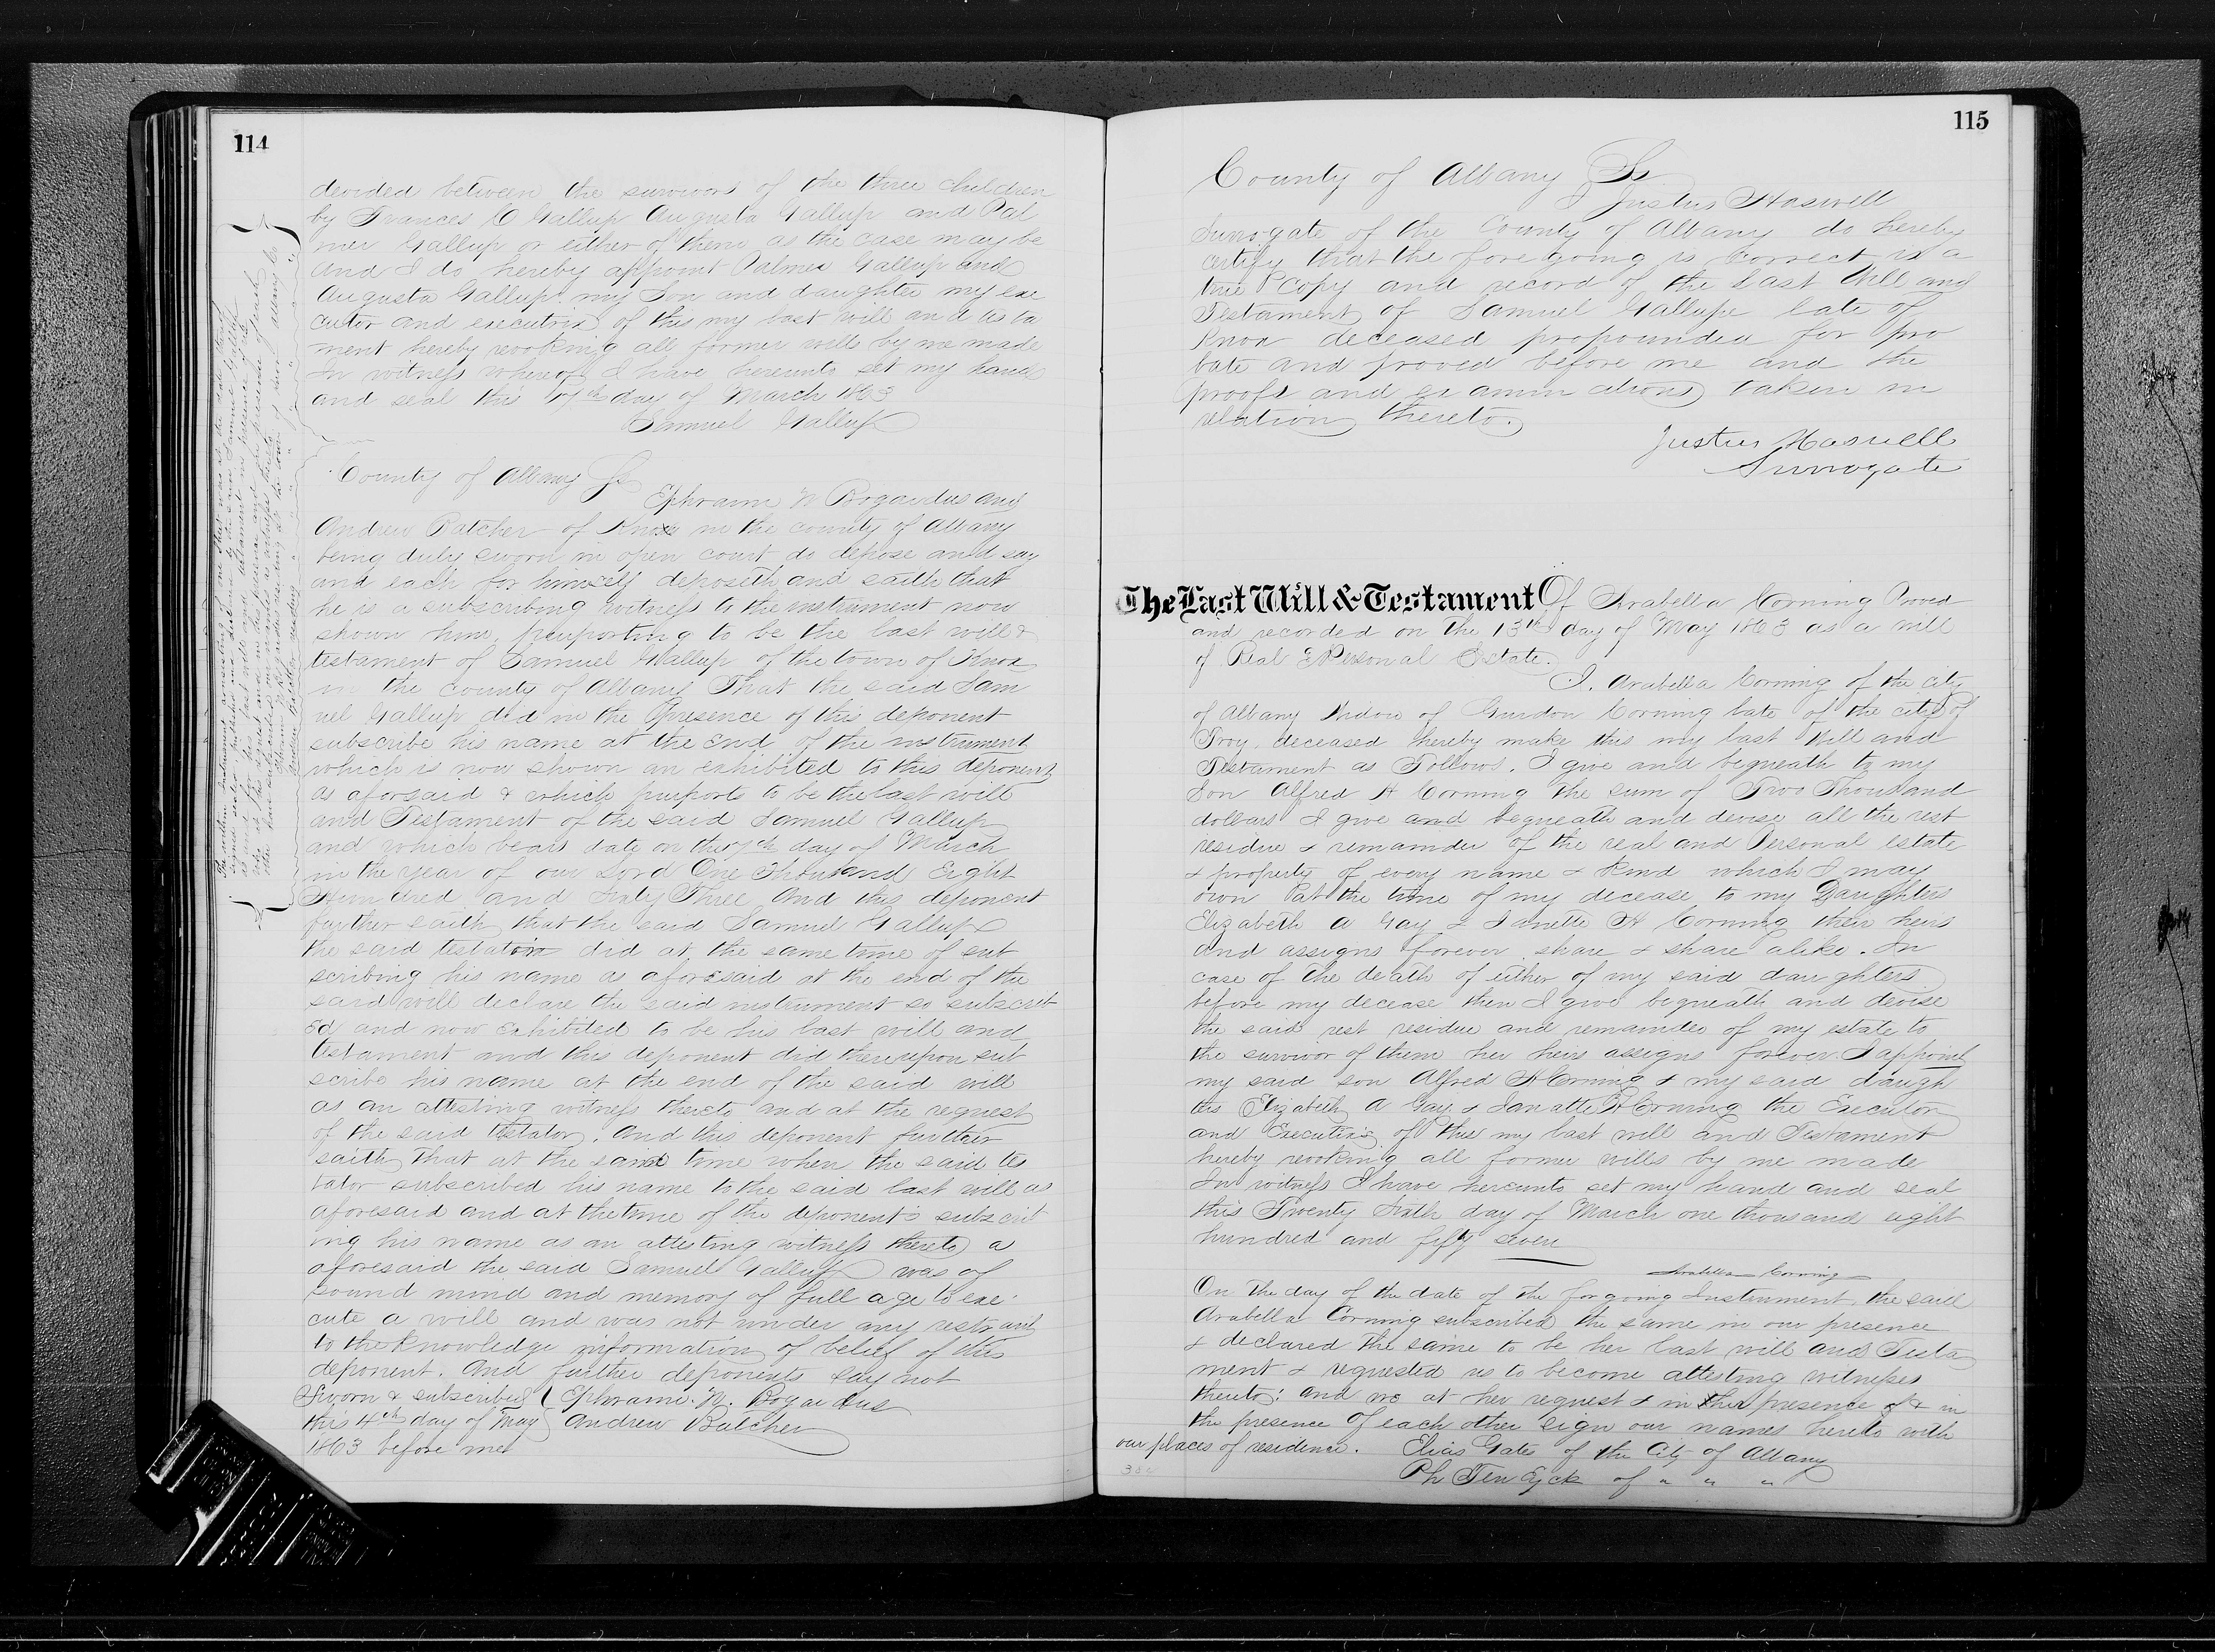 114
devided between the survivors of the three children
by Frances C Gallup Augusta Gallup and Pal
mer Gallup or either of them as the case may be
and I do hereby appoint Palmer Gallup and
Augusta Gallup my Son and daughter my exe
cutor and executrix of this my last will and testa
ment hereby revoking all former wills by me made
In witness whereof I have hereunto set my hand
and seal this 7th day of March 1863
Samuel Gallup
County of Albany Ss
Ephraim N Bogardus and
Andrew Batcher of Knox in the county of Albany
being duly sworn in open court do depose and say
and each for himself deposeth and saith that
he is a subscribing witness to the instrument now
shown him, purporting to be the last will &
testament of Samuel Gallup of the town of Knox
in the county of Albany That the said Sam
uel Gallup did in the presence of this deponent
subscribe his name at the end of the instrument
which is now shown an exhibited to this deponent
as aforsaid & which purports to be the last will
and Testament of the said Samuel Gallup
and which bears date on the 7th day of March
in the year of our Lord One Thousand Eight
Hundred and Sixty Three And this deponent
further saith that the said Samuel Gallup
the said testator did at the same time of sub
scribing his name as aforesaid at the end of the
said will declare the said instrument so subscrib
ed and now exhibited to be his last will and
testament and this deponent did thereupon sub
scribe his name at the end of the said will
as an attesting witness thereto and at the request
of the said testator. And this deponent further
saith That at the same time when the said tes
tator subscribed his name to the said last will as
aforesaid and at the time of the deponent's subscrib
ing his name as an attesting witness thereto a
aforesaid the said Samuel Gallup was of
sound mind and memory of full age to exe
cute a will and was not under any restraint
to the knowledge information of belief of this
deponent. And further deponents say not
Sworn & subscribed Ephraim. N. Bogardus
this 4th day of May Andrew Batcher
1863 before me
115
County of Albany Ss
I Justus Haswell
Surrogate of the County of Albany do hereby
certify that the foregoing is correct is a
true Copy and record of the Last Will and
Testament of Samuel Gallup late of
Knox deceased propounded for pro
bate and proved before me and the
proofs and examinations taken in
relation thereto.
Justus Haswell
Surrogate
The Last Will & Testament Of Arabella Corning Proved
and recorded on the 13th day of May 1863 as a will
of Real & Personal Estate.
I. Arabella Corning of the city
of Albany Widow of Gurdon Corning late of the city of
Troy deceased hereby make this my last Will and
Testament as Follows. I give and bequeath to my
Son Alfred H Corning the sum of Two Thousand
dollars I give and bequeath and devise all the rest
residue & remainder of the real and Personal estate
& property of every name & kind which I may
own at the time of my decease to my Daughters
Elizabeth A Gay & Janette H Corning their heirs
and assigns forever share & share alike. In
case of the death of either of my said daughters
before my decease then I give bequeath and devise
the said rest residue and remainder of my estate to
the survivor of them her heirs assigns forever. I appoint
my said son Alfred H Corning & my said daugh
ters Elizabeth A Gay & Janatte H Corning the Executor
and Executrix of this my last will and Testament
hereby revoking all former wills by me made
In witness I have hereunto set my hand and seal
this Twenty Sixth day of March one thousand eight
hundred and fifty seven
Arabella Corning
On the day of the date of the forgoing Instrument, the said
Arabella Corning subscribed the same in our presence
& declared the same to be her last will and Testa
ment & requested us to become attesting witnesses
thereto: and we at her request & in her presence & in
the presence of each other sign our names hereto with
our places of residence. Elias Gates of the City of Albany
Ph Ten Eyck of " " "